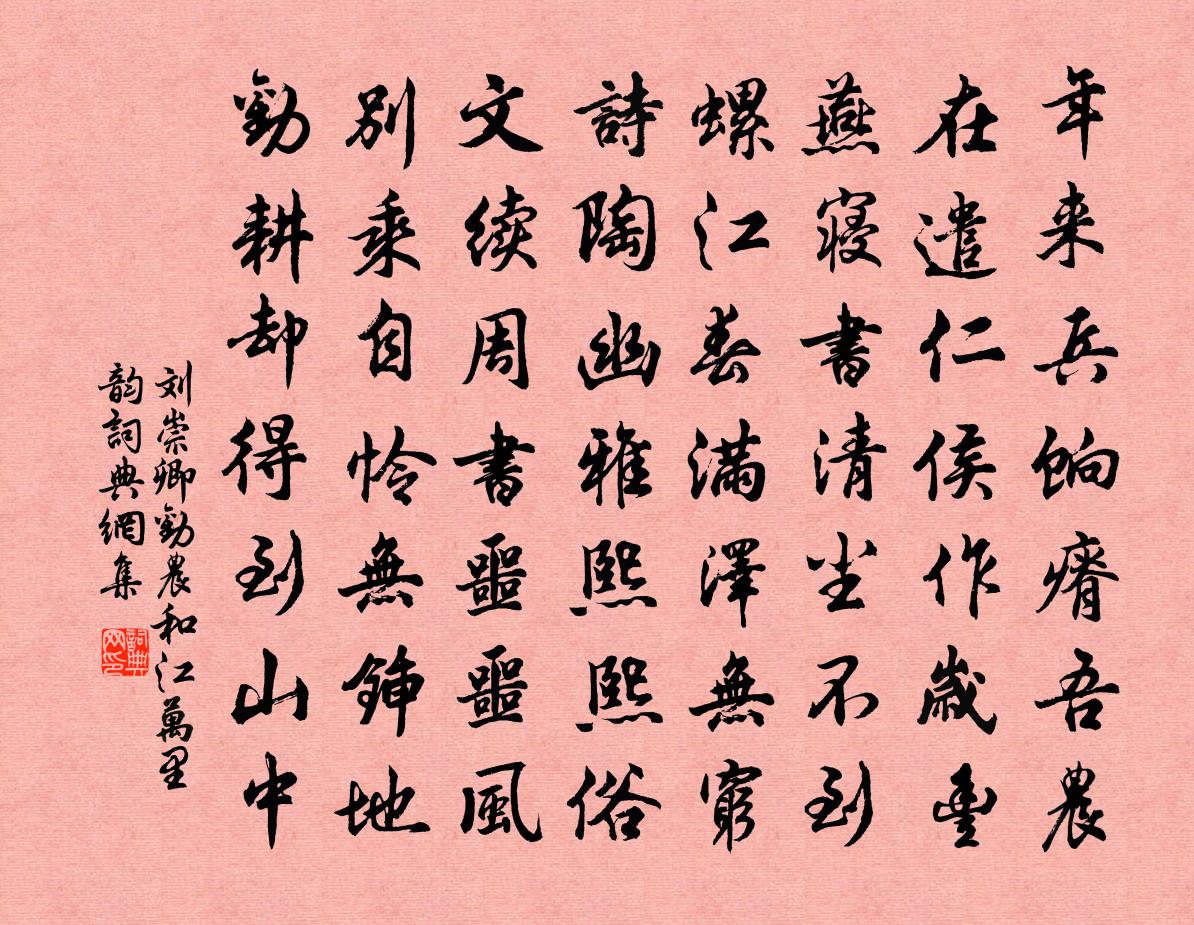 年来兵餉瘠吾農
在遣仁侯作歲豐
燕寢書清坐不到
螺江春滿澤無窮
詩陶幽雅熙熙俗
文续周書噩噩風
別乘自怜無鍤地
勸耕却得到山中
刘崇卿勸農和江萬里
韵詞典網集
詞典网印